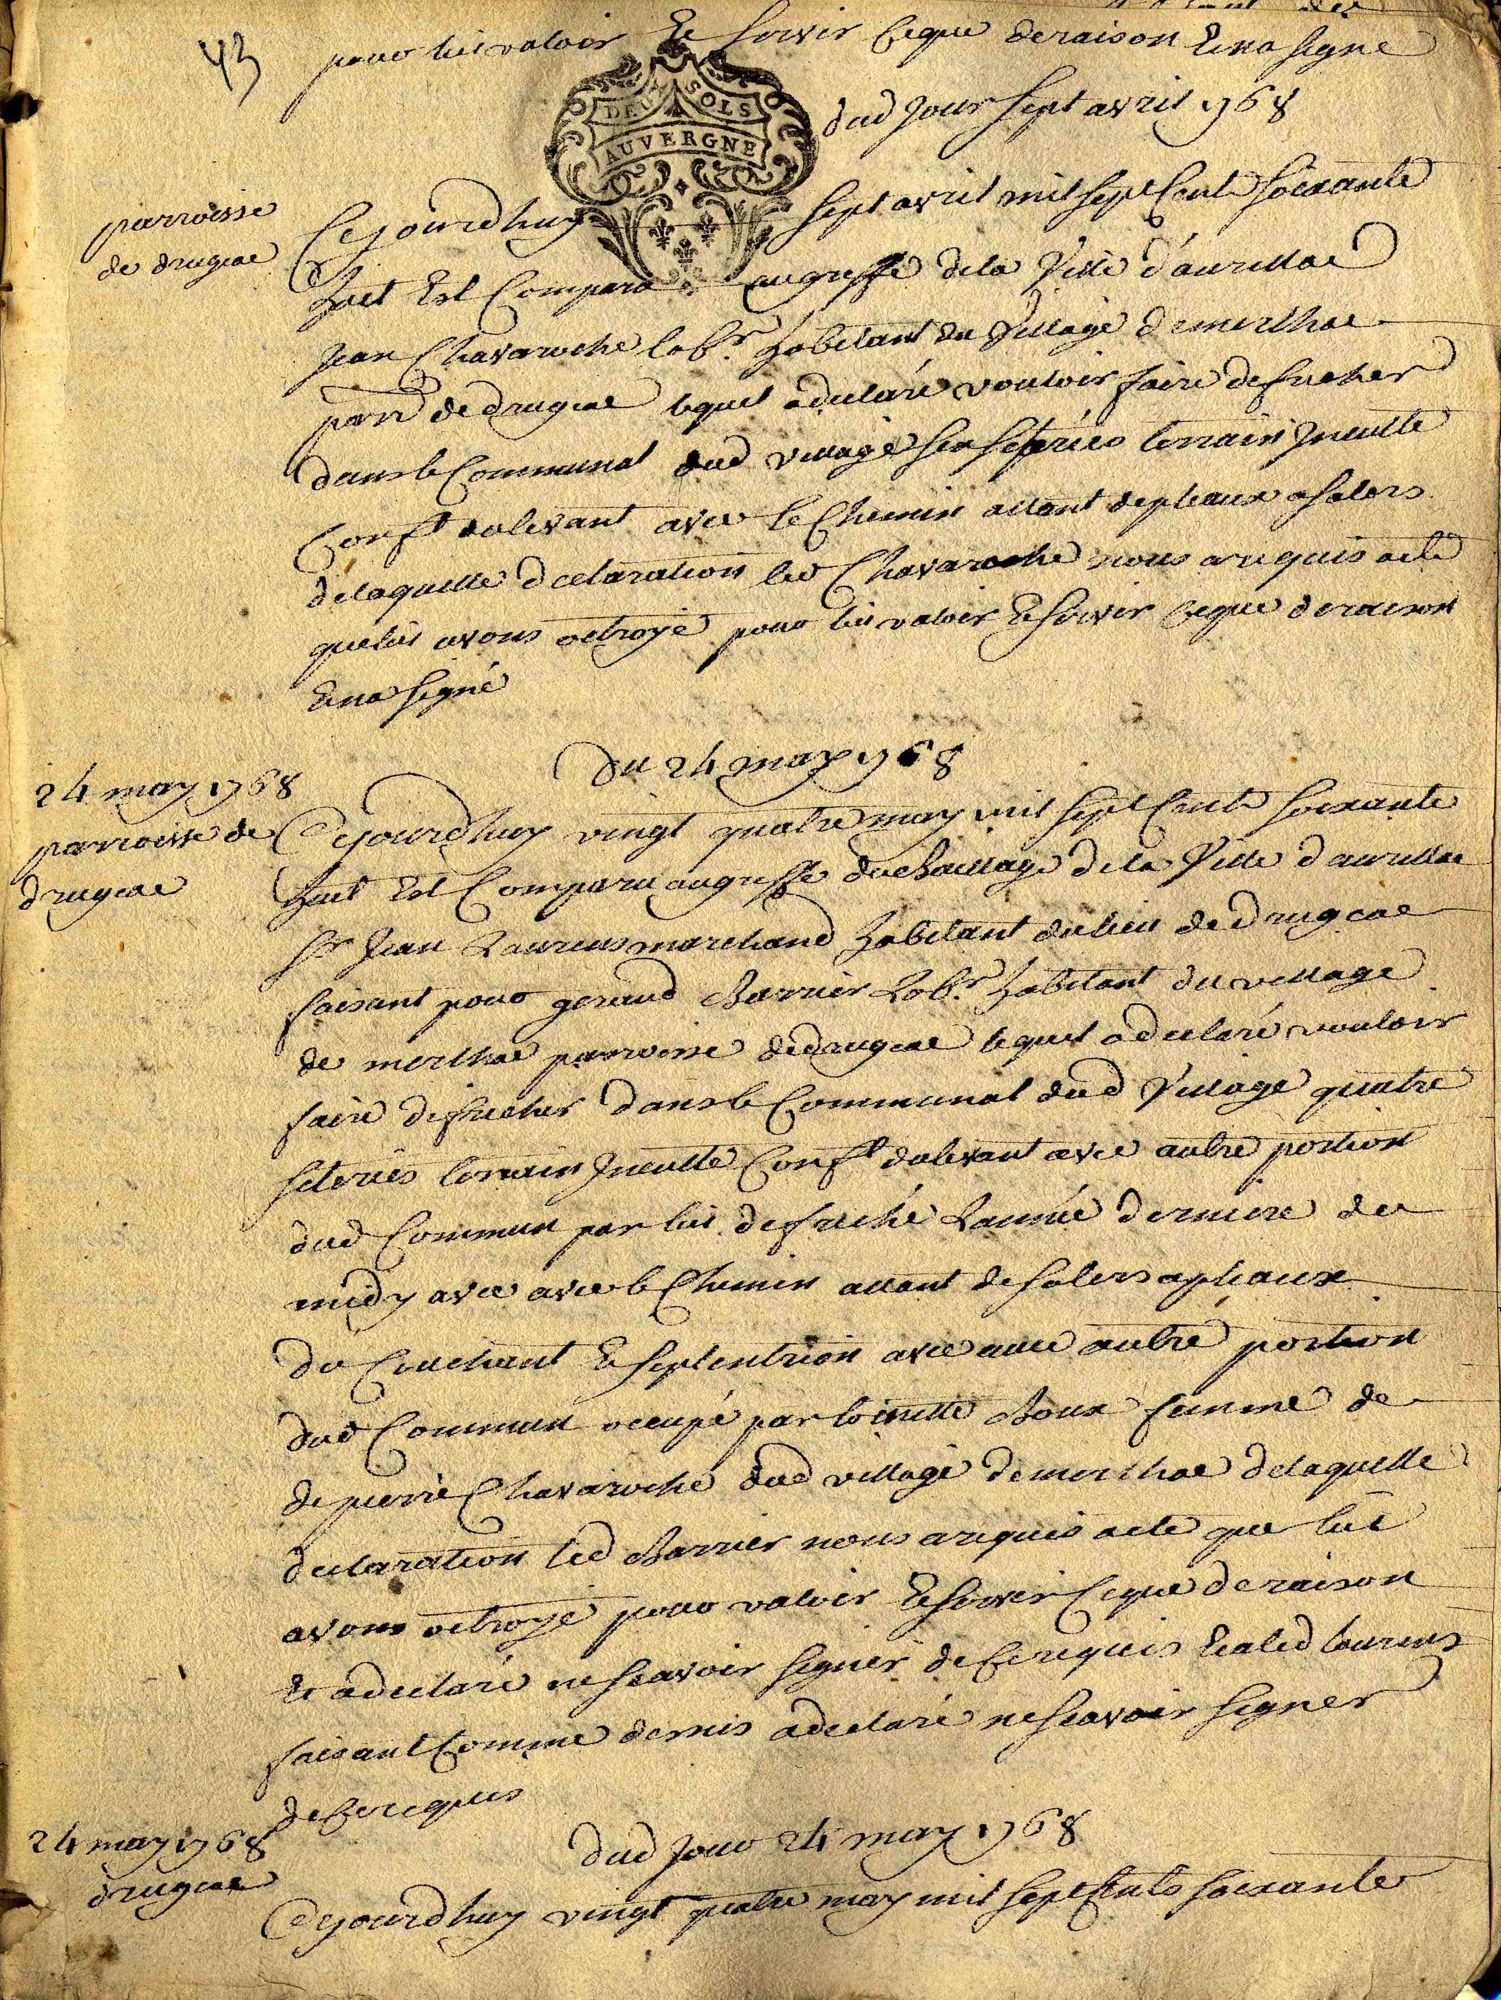 43
pour lui valoir Et servir Ceque deraison Et na signé
DEUX SOLS
AUVERGNE
dud Jour sept avril 1768
parroisse
de drugeac
Cejourdhuy sept avril mil sept Cents soixante
huit Est Comparu augreffe dela Ville d'aurillac
Jean Chavaroche labr. habitant du Village demerlhac
parr dedrugeac lequel adeclaré vouloir faire defricher
dansle Communal dud village six seteries terrain Jnculte
Conft. dulevant avec le Chemin allant depleaux a salers
delaquelle declaration led Chavaroche nous a requis acte
quelui avons octroyé pour lui valoir Et servir Ceque deraison
Et na signé
du 24 may 1768
24 may 1768
parroisse de
drugeac
Cejourdhuy vingt quatre may mil sept Cents soixante
huit Est Comparu augreffe du Baillage dela Ville d'aurillac
sr. Jean Laurens marchand habitant dulieu de drugeac
faisant pour geraud Barrier Labr. habitant du village
de merlhac parroisse dedrugeac lequel adeclaré vouloir
faire defricher dansle Communal dud Village quatre
seteries terrain Jnculte Conft. dulevant avec autre portion
dud Commun par lui defriché Lannée derniere de
midy avec avec le Chemin allant de salers a pleaux
du Couchant Et septentrion avec une autre portion
dud Commun occupé par toinette Boux femme de
de pierre Chavaroche dud village demerlhac delaquelle
declaration led Barrier nous a requis acte que lui
avons octroyé pour valoir Et servir Ceque deraison
Et adeclaré ne scavoir signer de Ce requis Et aled laurens
faisant Comme dernis adeclaré ne scavoir signer
de Ce requis
24 may 1768
drugeac
dud Jour 24 may 1768
Cejourdhuy vingt quatre may mil sept Cents soixante